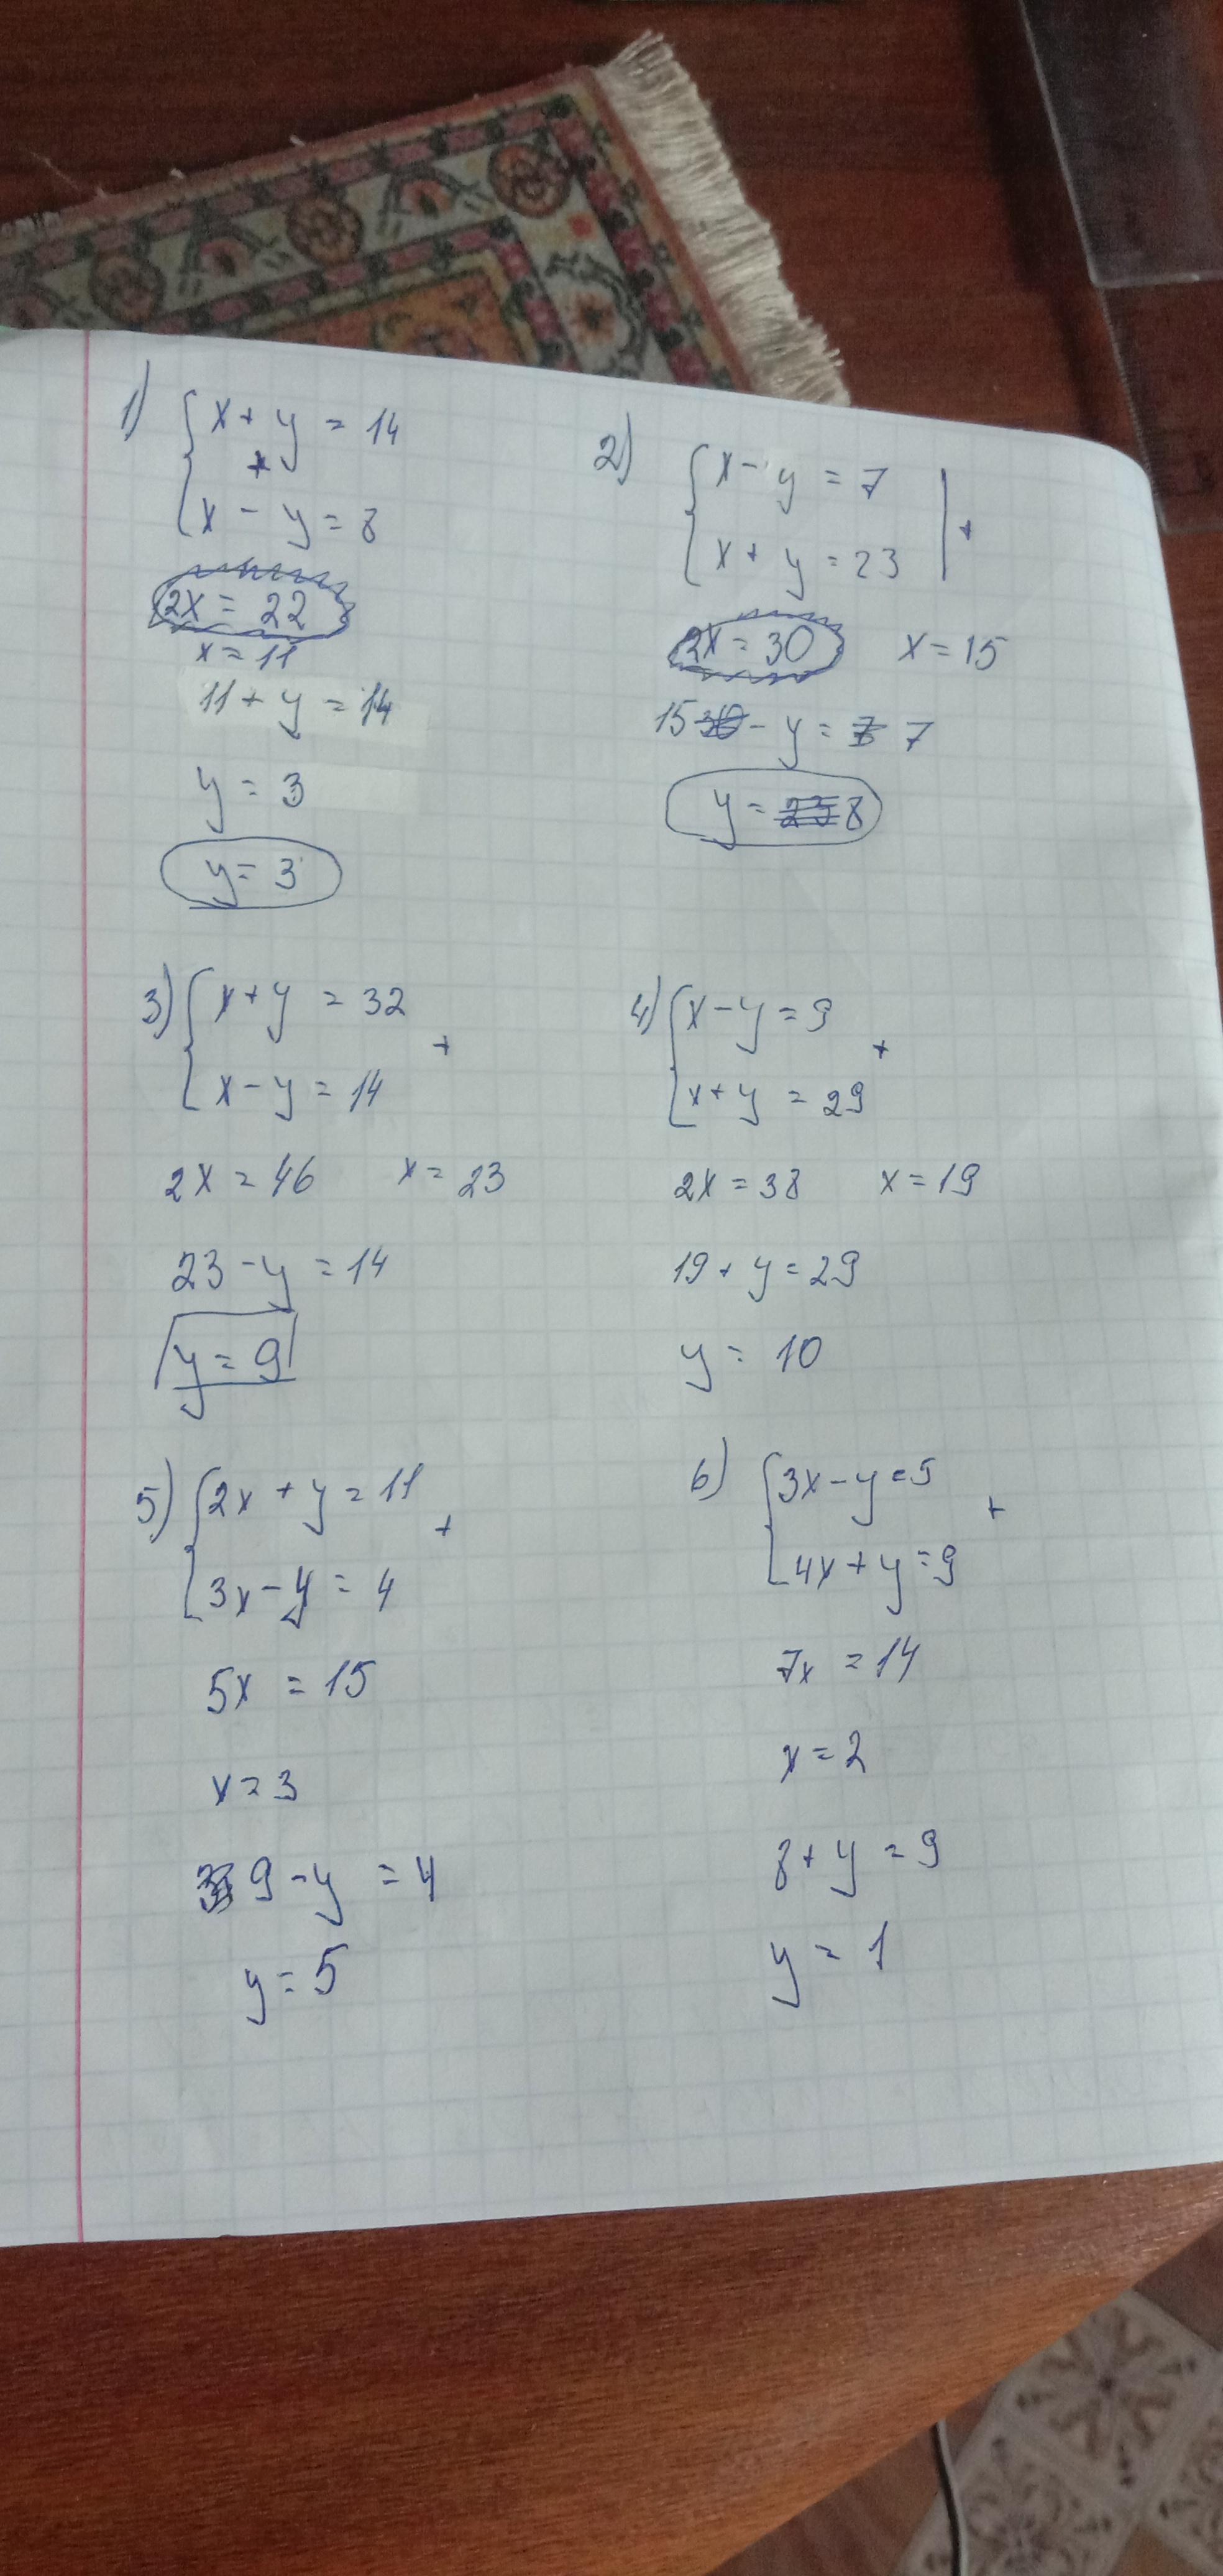 1) x + y = 14
+
x - y = 8
2x = 22
x = 11
11 + y = 14
y = 3
y = 3
2) x - y = 7
x + y = 23 | +
2x = 30 x = 15
15 30 - y = 7 7
y = 23 8
3) x + y = 32
+
x - y = 14
2x = 46 x = 23
23 - y = 14
y = 9
4) x - y = 9
+
x + y = 29
2x = 38 x = 19
19 + y = 29
y = 10
5) 2x + y = 11
+
3x - y = 4
5x = 15
x = 3
9 - y = 4
y = 5
6) 3x - y = 5
+
4x + y = 9
7x = 14
x = 2
8 + y = 9
y = 1